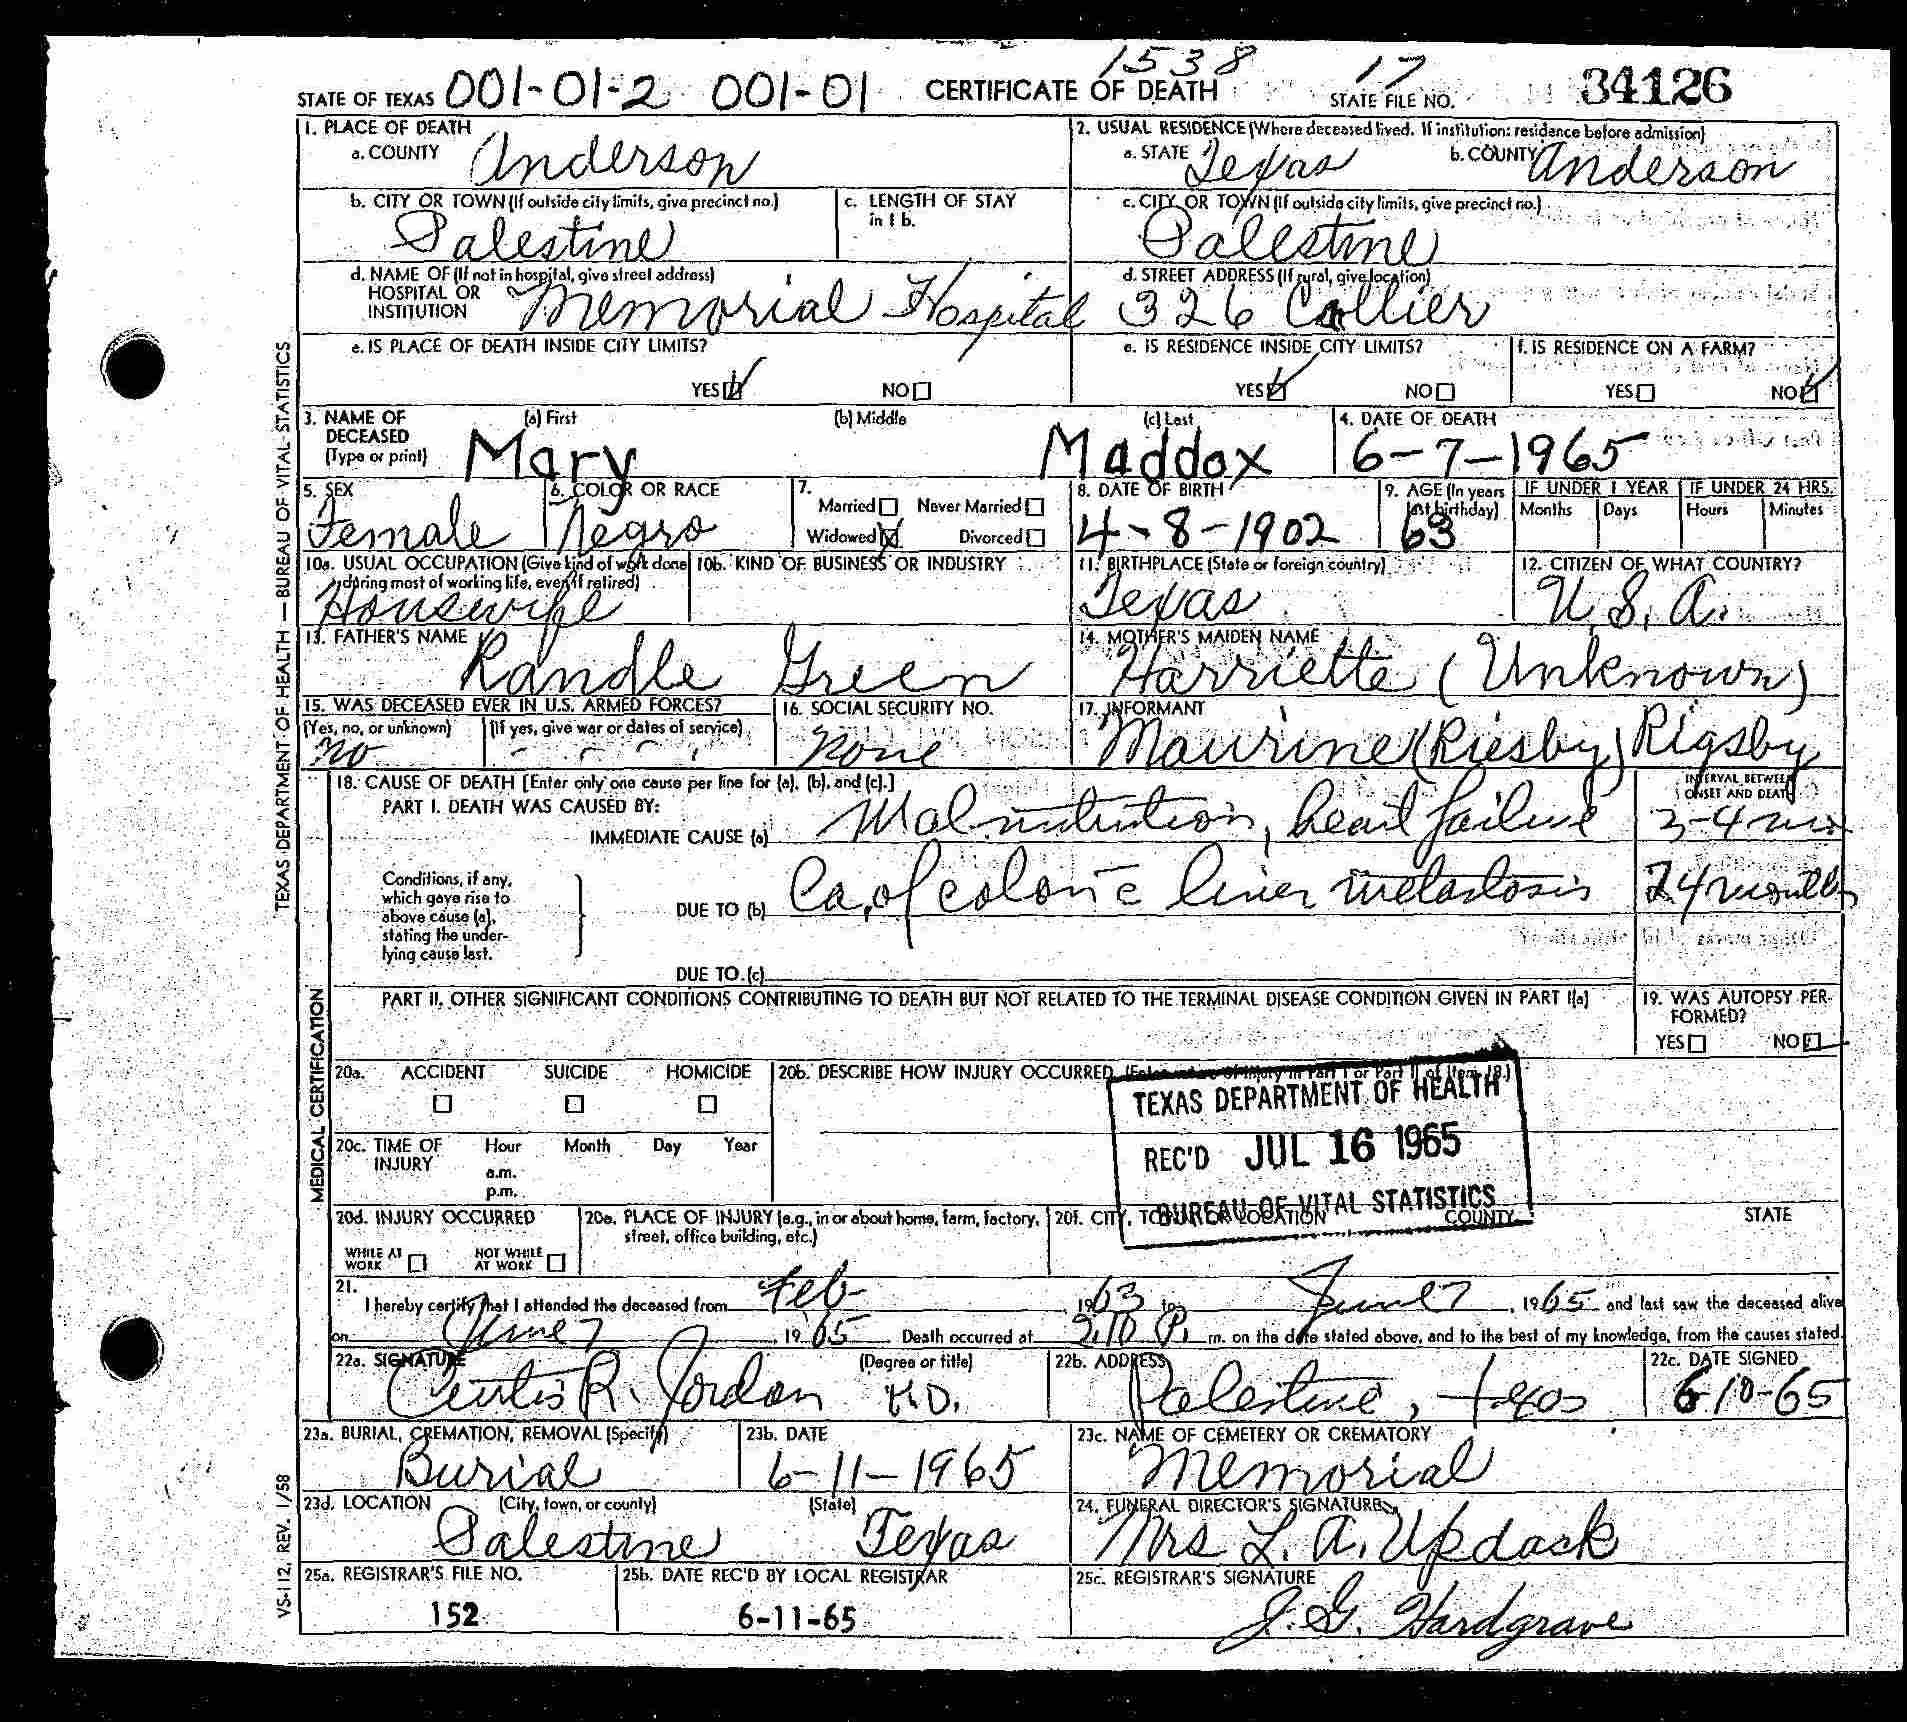 1538 17
STATE OF TEXAS 001-01-2 001-01 CERTIFICATE OF DEATH STATE FILE NO. 34126
1. PLACE OF DEATH
a. COUNTY Anderson
2. USUAL RESIDENCE (Where deceased lived. If institution: residence before admission)
a. STATE Texas b. COUNTY Anderson
b. CITY OR TOWN (If outside city limits, give precinct no.) Palestine
c. LENGTH OF STAY in 1 b.
c. CITY OR TOWN (If outside city limits, give precinct no.) Palestine
d. NAME OF (If not in hospital, give street address)
HOSPITAL OR
INSTITUTION Memorial Hospital
d. STREET ADDRESS (If rural, give location)
326 Collier
e. IS PLACE OF DEATH INSIDE CITY LIMITS?
YES NO
e. IS RESIDENCE INSIDE CITY LIMITS?
YES NO
f. IS RESIDENCE ON A FARM?
YES NO
3. NAME OF DECEASED (Type or print)
(a) First (b) Middle (c) Last
Mary Maddox
4. DATE OF DEATH
6-7-1965
5. SEX
Female
6. COLOR OR RACE
Negro
7.
Married Never Married
Widowed Divorced
8. DATE OF BIRTH
4-8-1902
9. AGE (In years last birthday)
63
IF UNDER 1 YEAR
Months Days
IF UNDER 24 HRS.
Hours Minutes
10a. USUAL OCCUPATION (Give kind of work done during most of working life, even if retired)
Housewife
10b. KIND OF BUSINESS OR INDUSTRY
11. BIRTHPLACE (State or foreign country)
Texas
12. CITIZEN OF WHAT COUNTRY?
U.S.A.
13. FATHER'S NAME
Randle Green
14. MOTHER'S MAIDEN NAME
Harriette (Unknown)
15. WAS DECEASED EVER IN U.S. ARMED FORCES?
(Yes, no, or unknown) (If yes, give war or dates of service)
no - - - -
16. SOCIAL SECURITY NO.
None
17. INFORMANT
Maurine (Riesby) Rigsby
18. CAUSE OF DEATH [Enter only one cause per line for (a), (b), and (c).]
INTERVAL BETWEEN
ONSET AND DEATH
PART I. DEATH WAS CAUSED BY:
IMMEDIATE CAUSE (a) Malnutrition, heart failure 3-4 mo
Conditions, if any,
which gave rise to
above cause (a),
stating the under-
lying cause last.
DUE TO (b) Ca. of colon c̄ liver metastosis 24 months
DUE TO (c)
PART II. OTHER SIGNIFICANT CONDITIONS CONTRIBUTING TO DEATH BUT NOT RELATED TO THE TERMINAL DISEASE CONDITION GIVEN IN PART I(a)
19. WAS AUTOPSY PER-
FORMED?
YES NO
20a. ACCIDENT SUICIDE HOMICIDE
20b. DESCRIBE HOW INJURY OCCURRED. (Enter nature of injury in Part I or Part II of item 18.)
TEXAS DEPARTMENT OF HEALTH
REC'D JUL 16 1965
BUREAU OF VITAL STATISTICS
20c. TIME OF INJURY
Hour Month Day Year
a.m.
p.m.
20d. INJURY OCCURRED
WHILE AT WORK NOT WHILE AT WORK
20e. PLACE OF INJURY (e.g., in or about home, farm, factory,
street, office building, etc.)
20f. CITY, TOWN, OR LOCATION COUNTY STATE
21.
I hereby certify that I attended the deceased from Feb , 1963 to June 7 , 1965 and last saw the deceased alive
on June 7 , 1965 Death occurred at 2:10 P. m. on the date stated above, and to the best of my knowledge, from the causes stated.
22a. SIGNATURE (Degree or title)
Curtis R. Jordan M.D.
22b. ADDRESS
Palestine, Texas
22c. DATE SIGNED
6-10-65
23a. BURIAL, CREMATION, REMOVAL (Specify)
Burial
23b. DATE
6-11-1965
23c. NAME OF CEMETERY OR CREMATORY
Memorial
23d. LOCATION (City, town, or county) (State)
Palestine Texas
24. FUNERAL DIRECTOR'S SIGNATURE
Mrs L. A. Updack
25a. REGISTRAR'S FILE NO.
152
25b. DATE REC'D BY LOCAL REGISTRAR
6-11-65
25c. REGISTRAR'S SIGNATURE
J. G. Hardgrave
TEXAS DEPARTMENT OF HEALTH — BUREAU OF VITAL STATISTICS
MEDICAL CERTIFICATION
VS-112, REV. 1/58